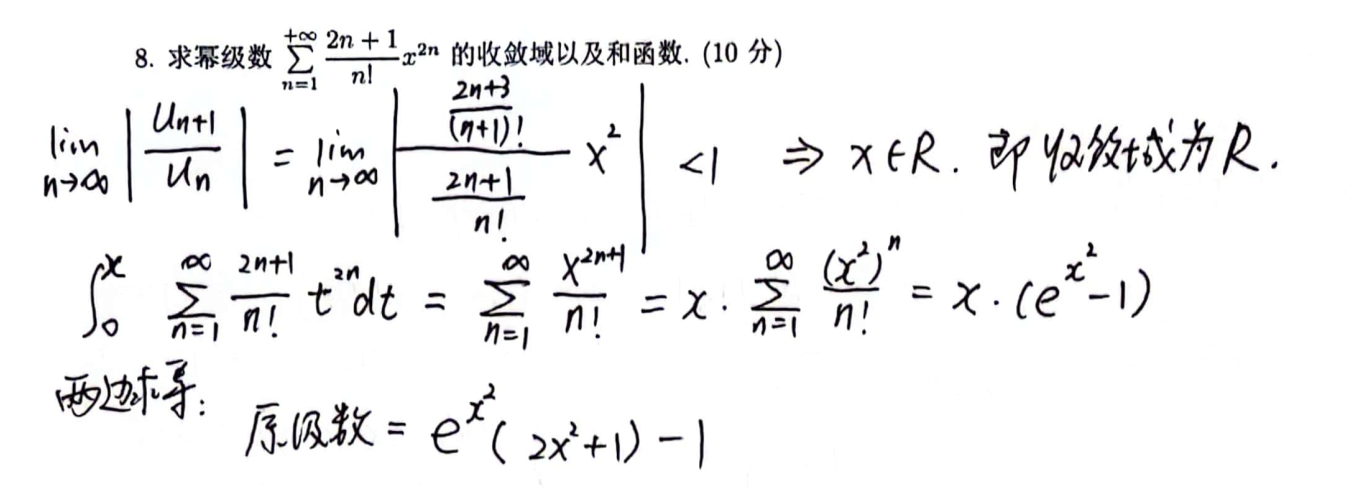 8. 求幂级数 $\sum_{n=1}^{+\infty} \frac{2n+1}{n!} x^{2n}$ 的收敛域以及和函数. (10 分)
$\lim_{n\to\infty} \left| \frac{u_{n+1}}{u_n} \right| = \lim_{n\to\infty} \left| \frac{\frac{2n+3}{(n+1)!}}{\frac{2n+1}{n!}} x^2 \right| < 1 \Rightarrow x \in R.$ 即收敛域为 R.
$\int_0^x \sum_{n=1}^{\infty} \frac{2n+1}{n!} t^{2n} dt = \sum_{n=1}^{\infty} \frac{x^{2n+1}}{n!} = x \cdot \sum_{n=1}^{\infty} \frac{(x^2)^n}{n!} = x \cdot (e^{x^2} - 1)$
两边求导:
原级数 = $e^{x^2} (2x^2+1) - 1$